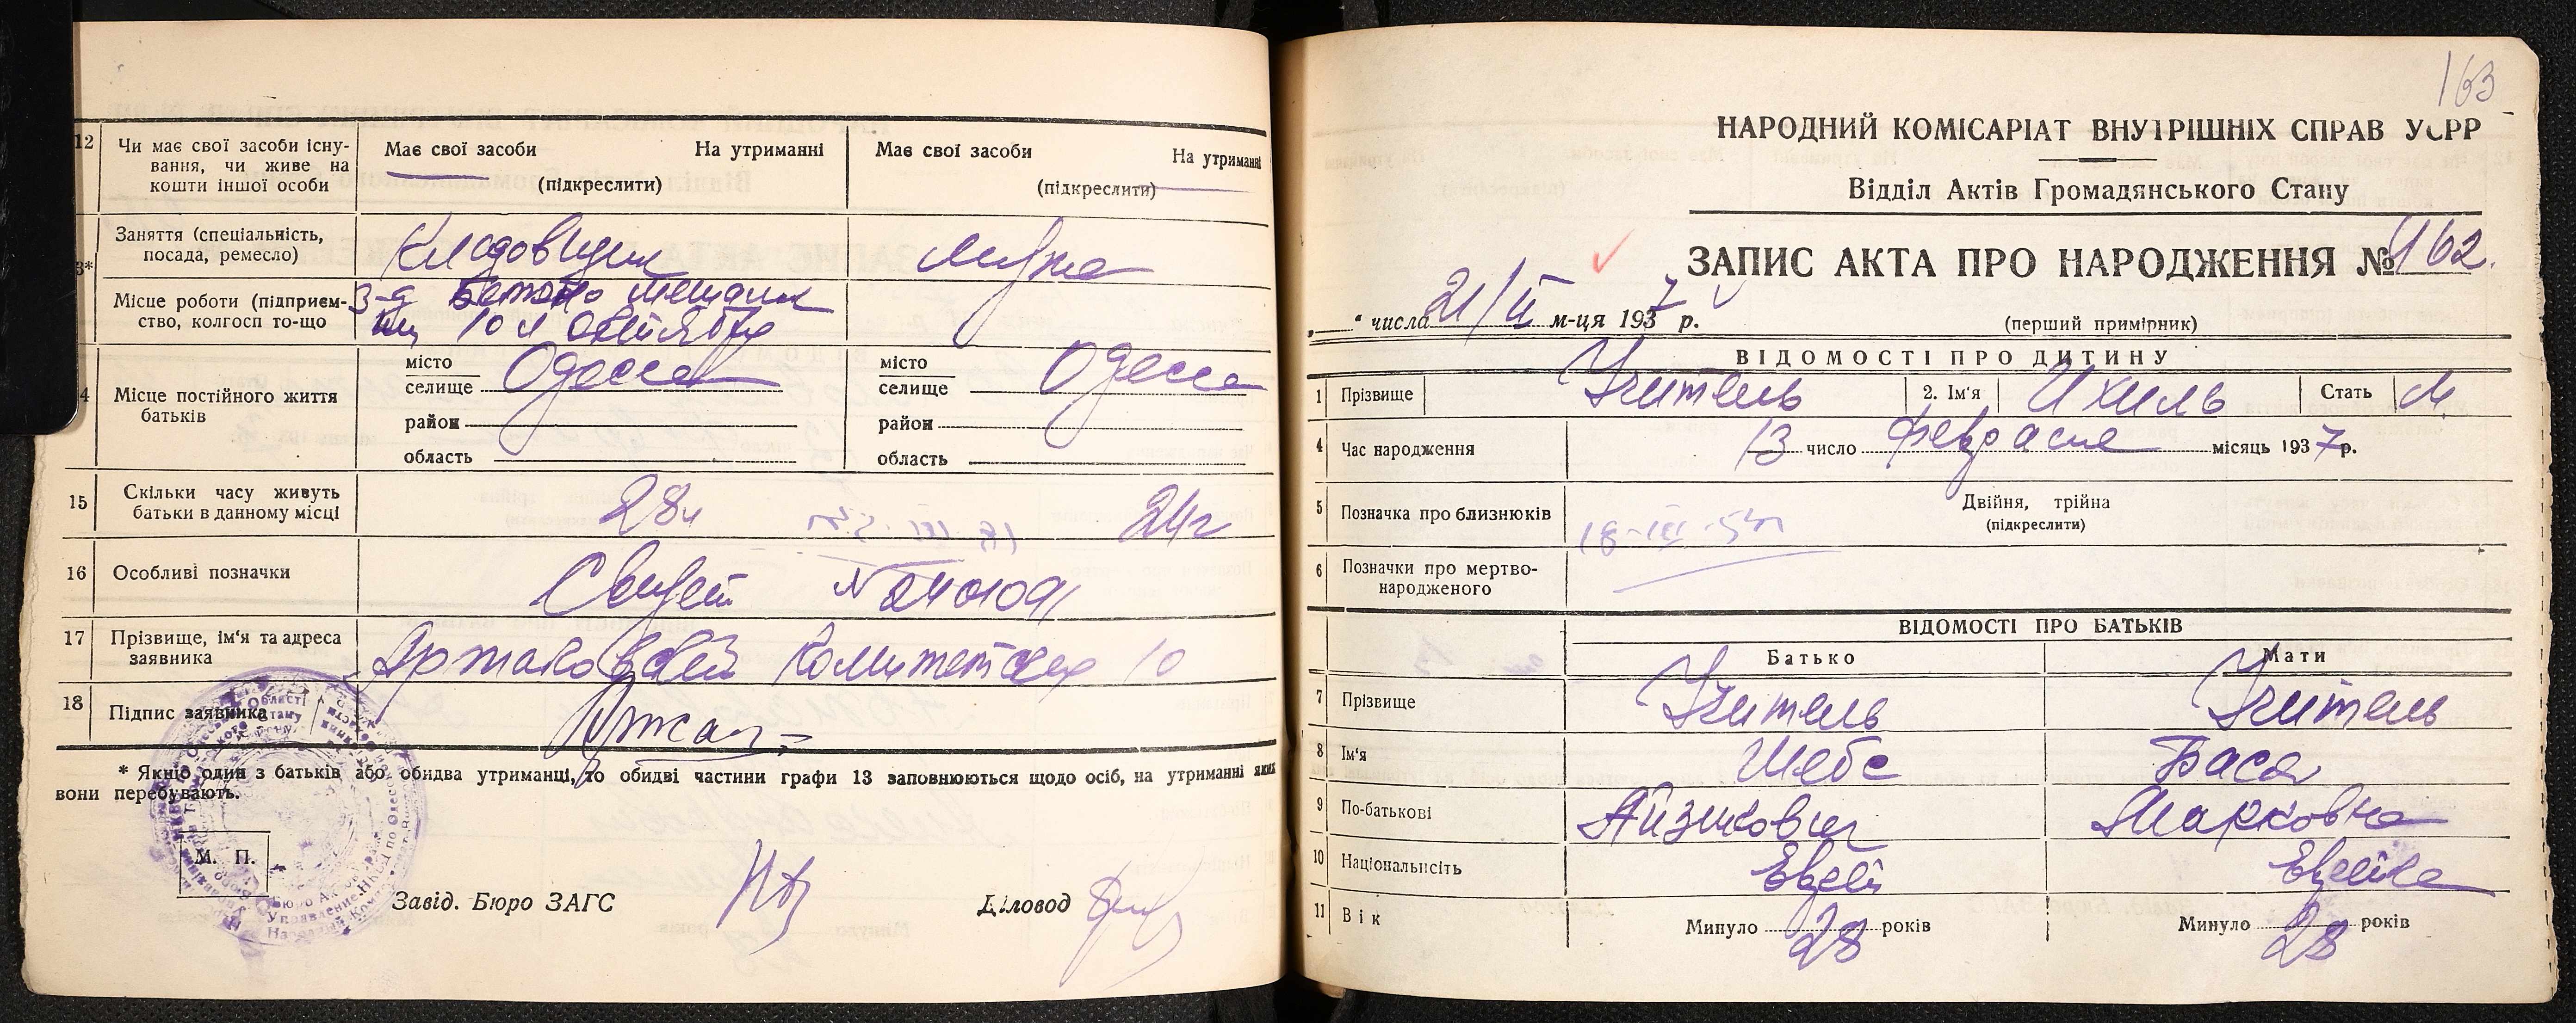 12
Чи має свої засоби існу-
вання, чи живе на
кошти іншої особи
Має свої засоби На утриманні
(підкреслити)
Має свої засоби На утриманні
(підкреслити)
3*
Заняття (спеціальність,
посада, ремесло)
Кладовщик
Мужа
Місце роботи (підприєм-
ство, колгосп то-що
З-д
10 л Октября
4
Місце постійного життя
батьків
місто
селище Одесса
район
область
місто
селище Одесса
район
область
15
Скільки часу живуть
батьки в данному місці
28л
24г
16
Особливі позначки
Свидет №2401091
17
Прізвище, ім'я та адреса
заявника
Комитетская 10
18
Підпис заявника
* Якщо один з батьків або обидва утриманці, то обидві частини графи 13 заповнюються щодо осіб, на утриманні яких
вони перебувають.
М. П.
Завід. Бюро ЗАГС
Діловод
163
НАРОДНИЙ КОМІСАРІАТ ВНУТРІШНІХ СПРАВ УСРР
Відділ Актів Громадянського Стану
ЗАПИС АКТА ПРО НАРОДЖЕННЯ № 462.
„ “ числа 21/II м-ця 1937 р.
(перший примірник)
ВІДОМОСТІ ПРО ДИТИНУ
1 Прізвище Учитель 2. Ім'я Ихиль Стать М.
4 Час народження 13 число февраля місяць 1937 р.
5 Позначка про близнюків
Двійня, трійна
(підкреслити)
18-III-
6 Позначки про мертво-
народженого
ВІДОМОСТІ ПРО БАТЬКІВ
Батько Мати
7 Прізвище Учитель Учитель
8 Ім'я Шебс Бася
9 По-батькові Айзикович Марковна
10 Національність Еврей Еврейка
11 Вік Минуло 28 років Минуло 28 років